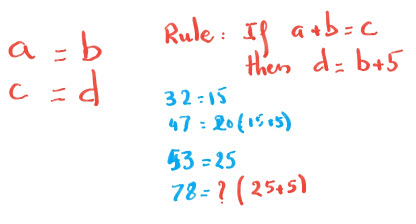 a = b
c = d
Rule: If a+b=c
then d=b+5
32=15
47=20(15+5)
53=25
78=? (25+5)